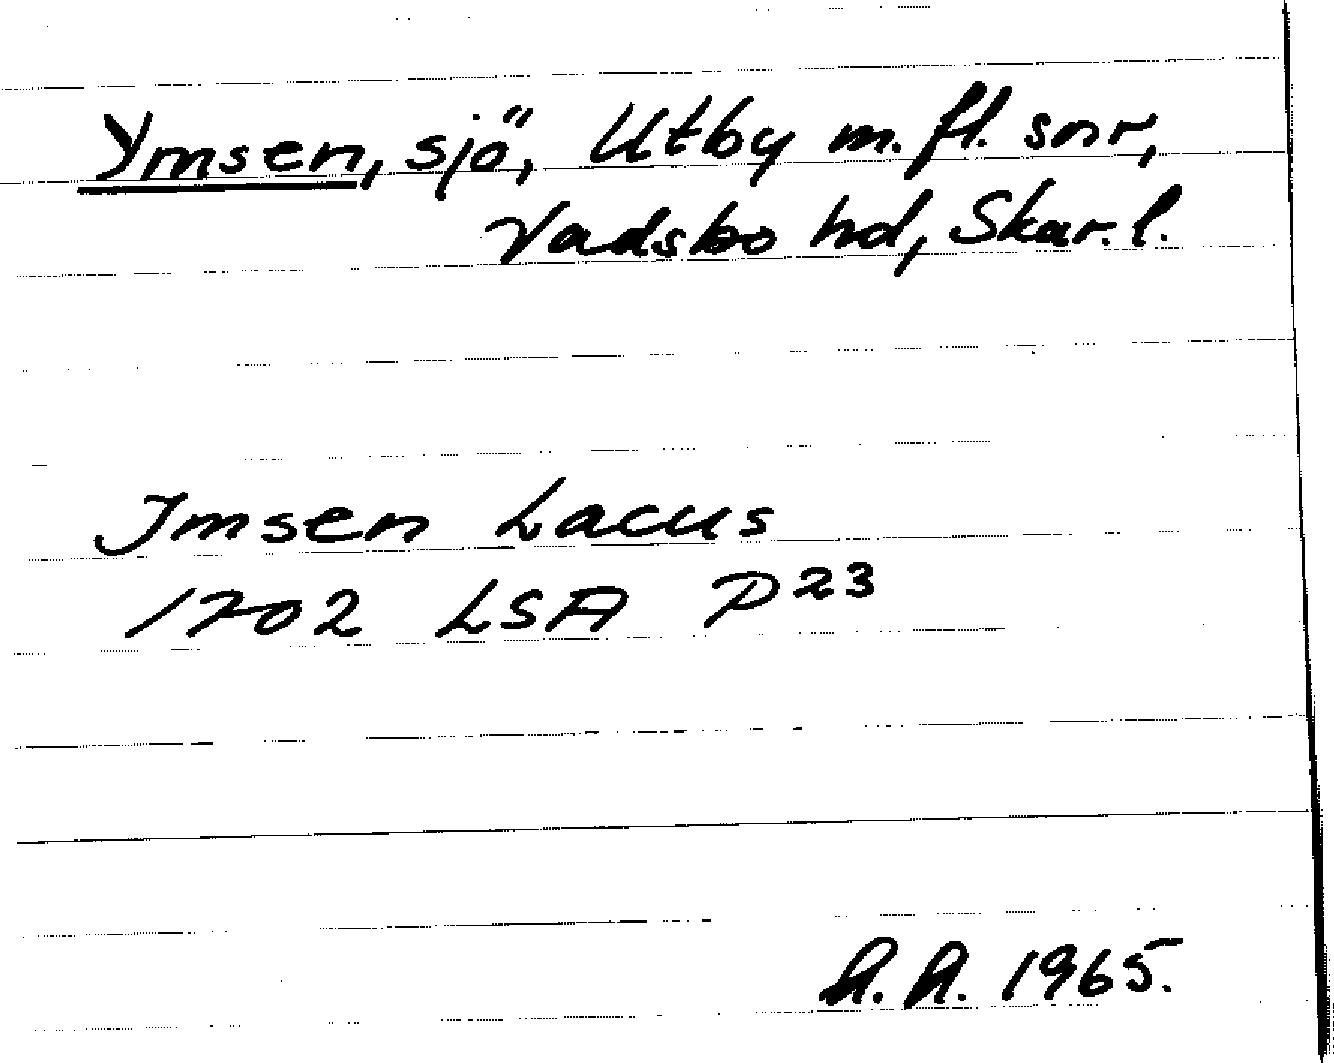 Ymsen, sjö, Utby m.fl. snr,
Vadsbo hd, Skar. l.
Imsen Lacus
1702 LSA P23
A.A. 1965.